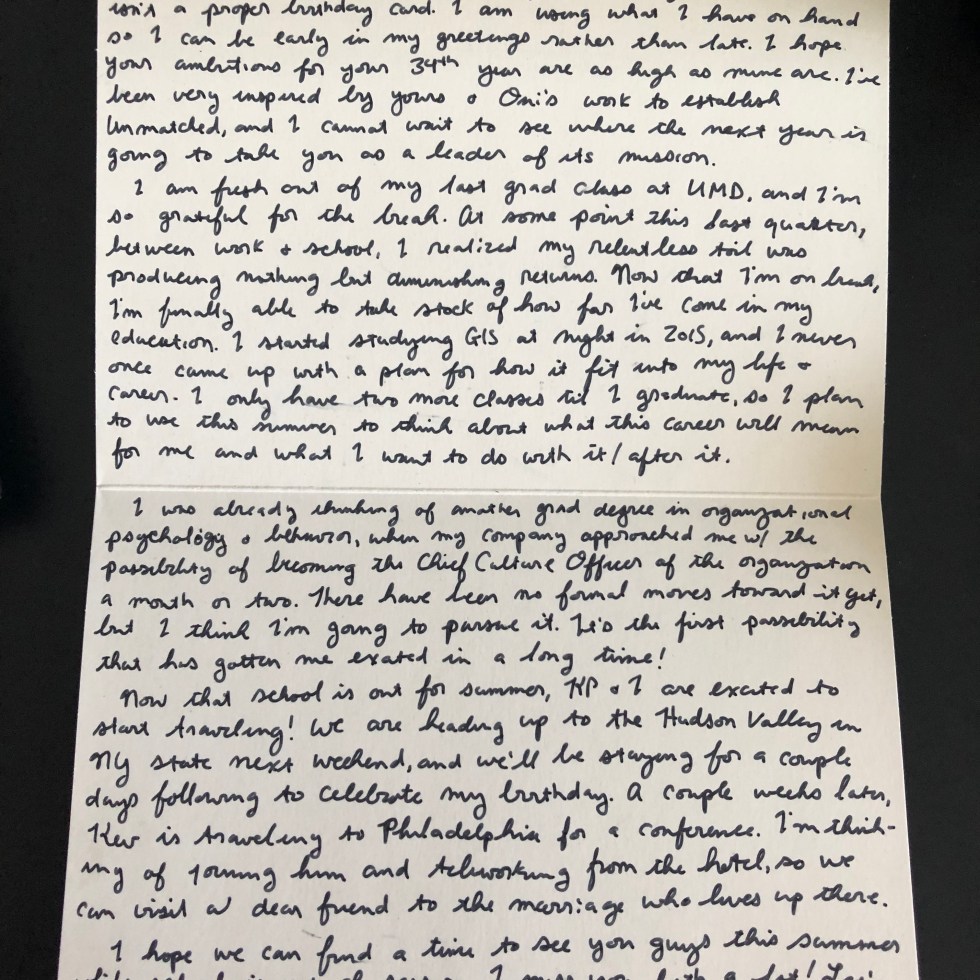 isn't a proper birthday card. I am using what I have on hand
so I can be early in my greetings rather than late. I hope
your ambitions for your 34th year are as high as mine are. I've
been very inspired by yours & Oni's work to establish
Unmatched, and I cannot wait to see where the next year is
going to take you as a leader of its mission.
I am fresh out of my last grad class at UMD, and I'm
so grateful for the break. At some point this last quarter,
between work & school, I realized my relentless toil was
producing nothing but diminishing returns. Now that I'm on break,
I'm finally able to take stock of how far I've come in my
education. I started studying GIS at night in 2015, and I never
once came up with a plan for how it fit into my life &
career. I only have two more classes til I graduate, so I plan
to use this summer to think about what this career will mean
for me and what I want to do with it/after it.
I was already thinking of another grad degree in organizational
psychology & behavior, when my company approached me w/ the
possibility of becoming the Chief Culture Officer of the organization
a month or two. There have been no formal moves toward it yet,
but I think I'm going to pursue it. It's the first possibility
that has gotten me excited in a long time!
Now that school is out for summer, KP & I are excited to
start traveling! We are heading up to the Hudson Valley in
NY state next weekend, and we'll be staying for a couple
days following to celebrate my birthday. A couple weeks later,
Kev is traveling to Philadelphia for a conference. I'm think-
ing of joining him and teleworking from the hotel, so we
can visit a dear friend to the marriage who lives up there.
I hope we can find a time to see you guys this summer